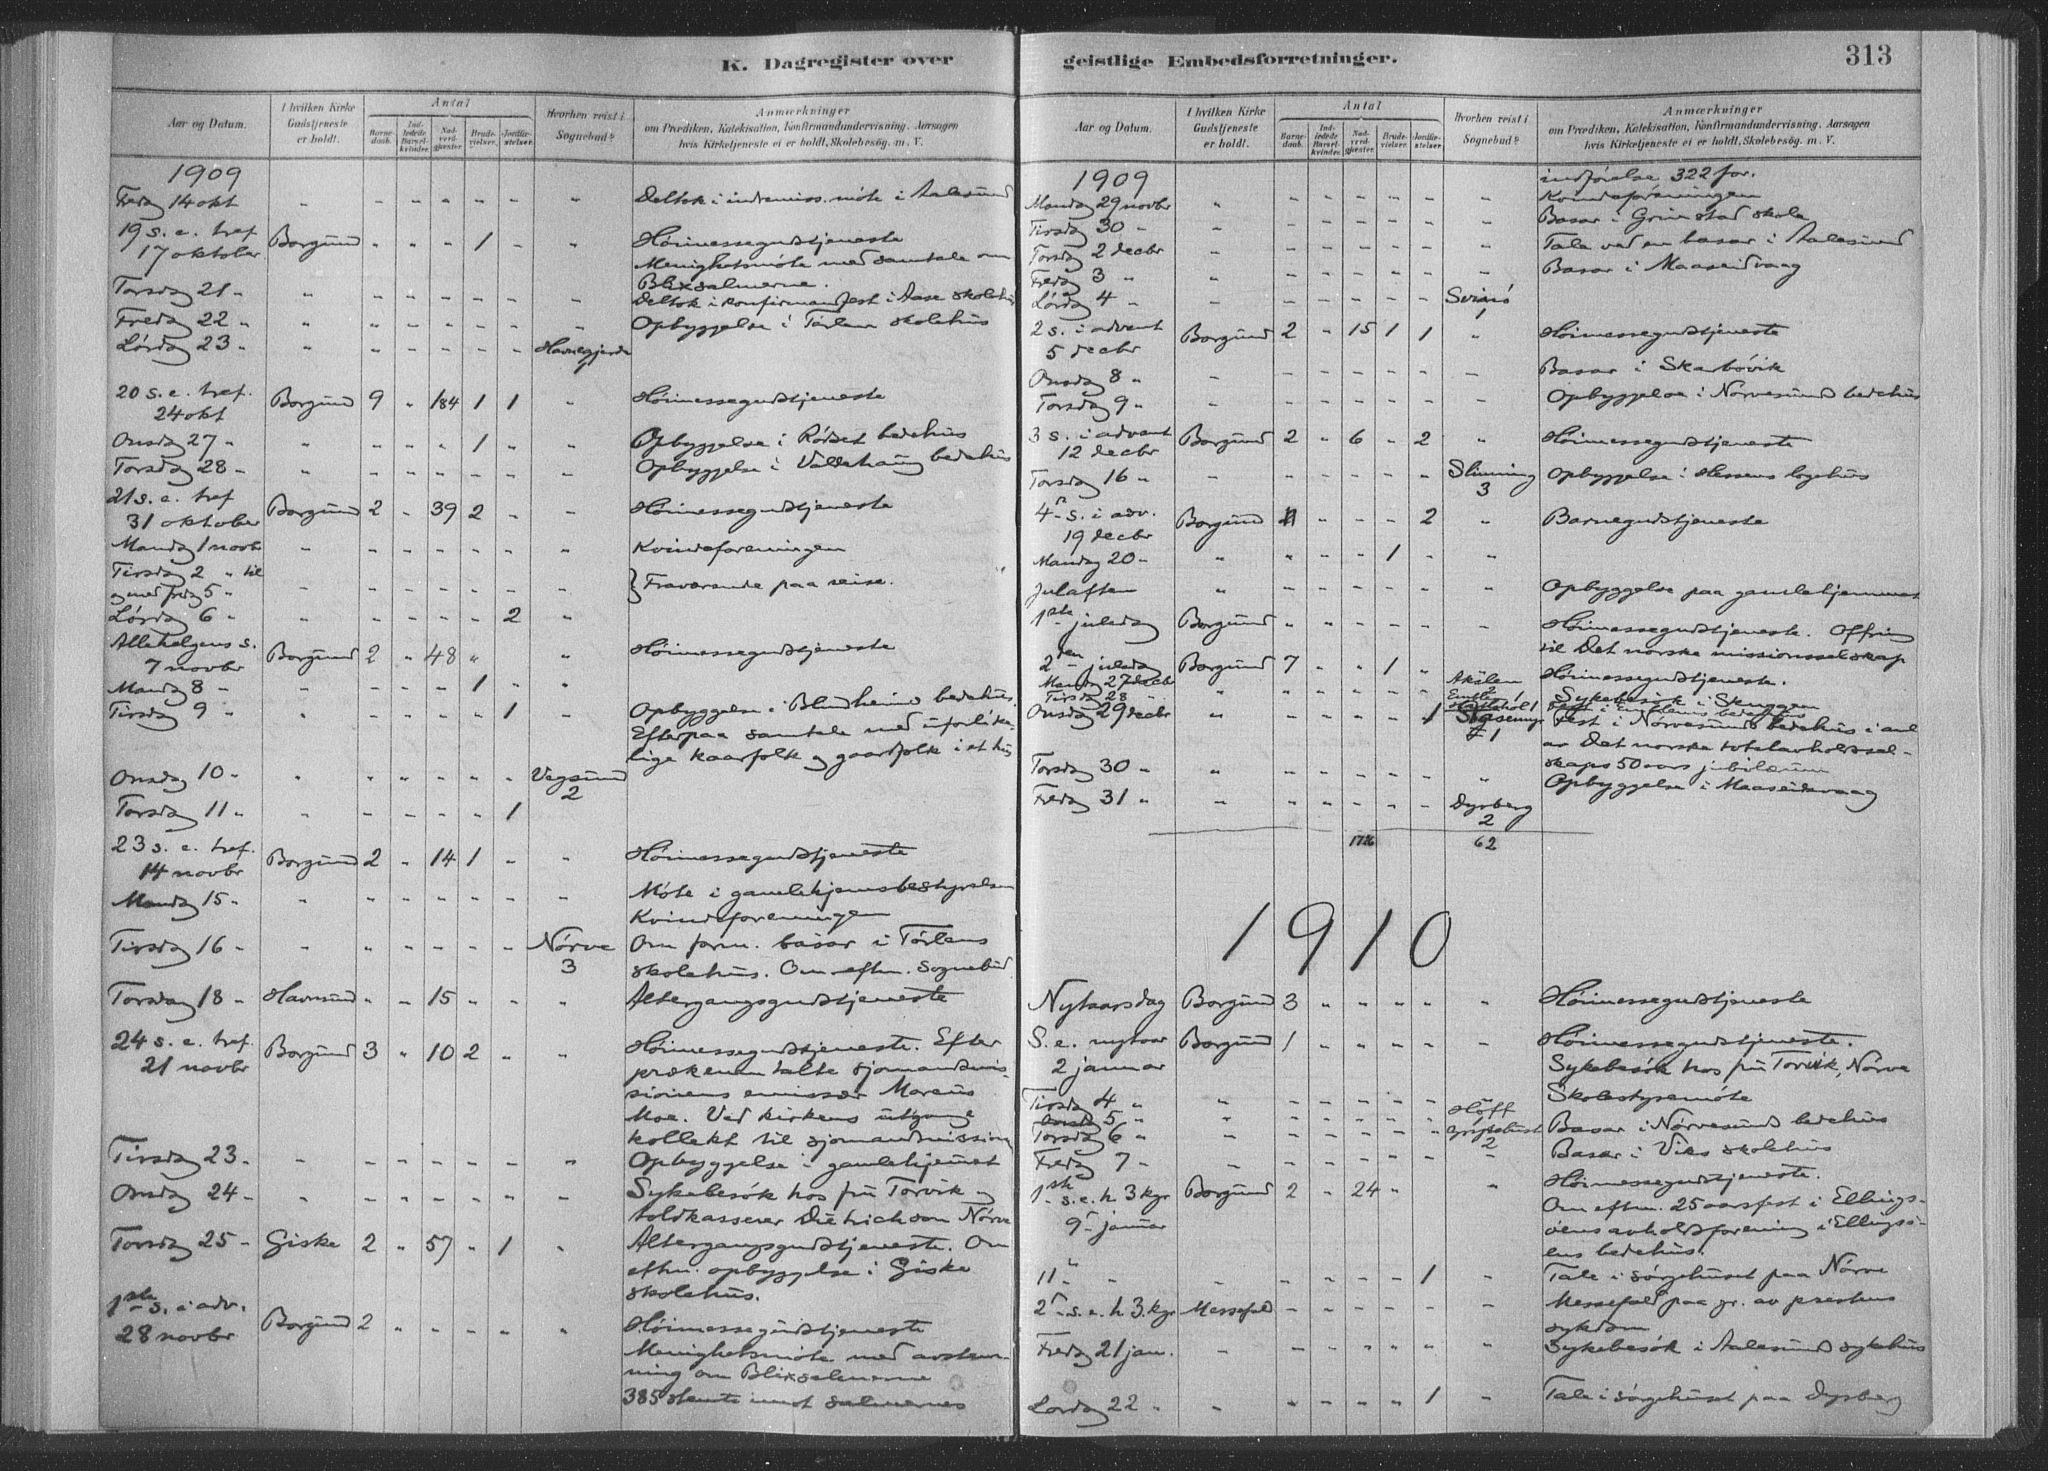 K. Dagregister over
Aar og Datum. I hvilken Kirke Gudstjeneste er holdt. Antal Barnedaab. Indledede Barselkvinder. Nadverdgjæster. Brudevielser. Jordfæstelser. Hvorhen reist i Sognebud? Anmærkninger
om Prædiken, Katekisation, Konfirmandundervisning. Aarsagen
hvis Kirketjeneste ei er holdt, Skolebesøg. m. V.
1909
Fredag 14 okt " - - - - - " Deltok i indremiss. møte i Aalesund
19 s. e. tref
17 oktober Borgund " " " 1 - " Høimessegudstjeneste
Menighetsmøte med samtale om
Blixsalmerne.
Torsdag 21 " " - - - - - " Deltok i konfirmanfest i Aase skolehus
Fredag 22 " " - - - - - " Opbyggelse i Tørlen skolehus
Lørdag 23 " " - - - - - Havnegjerde
1
20 s. e. tref.
24 okt Borgund 9 " 184 1 1 " Høimessegudstjeneste
Onsdag 27 " " " " " 1 " " Opbyggelse i Rødset bedehus
Torsdag 28 " " - - - - - " Opbyggelse i Valdehaug bedehus
21 s. e. tref
31 oktober Borgund 2 - 39 2 - " Høimessegudstjeneste
Mandag 1 novbr " - - - - - " Kvindeforeningen
Tirsdag 2 " til
og med fredag 5 " - - - - - - " } Fraværende paa reise.
Lørdag 6 " " - - - - 2 "
Allehelgens s.
7 novbr Borgund 2 " 48 " " Høimessegudstjeneste
Mandag 8 " " - - - 1 - "
Tirsdag 9 " " - - - - 1 " Opbyggelse i Blindheims bedehus.
Efterpaa samtale med uforlike-
lige kaarfolk og gaardfolk i et hus
Onsdag 10 " " " " " " " Vegsund
2
Torsdag 11 " " - - - - 1
23 s. e. tref.
14 novbr Borgund 2 " 14 1 - " Høimessegudstjeneste
Mandag 15 " " - - - - - " Møte i gamlehjemsbestyrelsen
Kvindeforeningen
Tirsdag 16 " " - - - - - Nørve
3 Om form. basar i Tørlens
skolehus. Om eftm. sognebud
Torsdag 18 " Havnsund " - 15 " " " Altergangsgudstjeneste
24 s. e. tref.
21 novbr Borgund 3 " 10 2 " " Høimessegudstjeneste. Efter
prækenen talte sjømandsmis-
sionens emissær Marcus
Moe. Ved kirkens utgang
kollekt til sjømandsmissionen
Tirsdag 23 " " - - - - - " Opbyggelse i gamlehjemet
Onsdag 24 " " " " " " " " Sykebesøk hos frü Torvik og
toldkasserer Dietrichson Nørve
Torsdag 25 " Giske 2 " 57 " 1 " Altergangsgudstjeneste. Om
eftm. opbyggelse i Giske
skolehus.
1ste s. i adv.
28 novbr Borgund 2 " " " " " Høimessegudstjeneste
Menighetsmøte med avstem-
ning om Blixsalmerne
385 stemte imot salmernes
geistlige Embedsforretninger. 313
Aar og Datum. I hvilken Kirke Gudstjeneste er holdt. Antal Barnedaab. Indledede Barselkvinder. Nadverdgjæster. Brudevielser. Jordfæstelser. Hvorhen reist i Sognebud? Anmærkninger
om Prædiken, Katekisation, Konfirmandundervisning. Aarsagen
hvis Kirketjeneste ei er holdt, Skolebesøg. m. V.
1909 indførelse 322 for.
Mandag 29 novbr " - - - - - " Kvindeforeningen
Tirsdag 30 " " - - - - - " Basar i Grimstad skole
Torsdag 2 decbr " - - - - - " Tale ved en basar i Aalesund
Fredag 3 " " - - - - - " Basar i Maaseidvaag
Lørdag 4 " " - - - - - Svinø
1
2 s. i advent
5 decbr Borgund 2 " 15 1 1 " Høimessegudstjeneste
Onsdag 8 " - - - - - - - Basar i Skarbøvik
Torsdag 9 " - - - - - - - Opbyggelse i Nørvesund bedehus
3 s. i advent
12 decbr Borgund 2 " 6 " 2 " Høimessegudstjeneste
Torsdag 16 " - - - - - - Slinning
3 Opbyggelse i Hessens logehus
4de s. i adv.
19 decbr Borgund " " " 2 " Barnegudstjeneste
Mandag 20 " " " " " 1 - "
Julaften " " - - - - " Opbyggelse paa gamlehjemmet
1ste juledag Borgund " " " - - - Høimessegudstjeneste. Offring
til Det norske missionsselskap
2den juledag Borgund 7 " " 1 " Høimessegudstjeneste.
Mandag 27 decbr Akslen
2 Sykebesøk i Skuggen
Tirsdag 28 "
Onsdag 29 decbr " 1 1 Fest i Nørvesund bedehus i anl
av Det norske totalavholdssel-
skaps 50 aars jubilæum
Torsdag 30 " " - - - - - " Opbyggelse i Maaseidvaag
Fredag 31 " " - - - - - Dyrberg
2
62
1910
Nytaarsdag Borgund 3 " " " " " Høimessegudstjeneste
S. e. nytaar
2 januar Borgund 1 " " " " " Høimessegudstjeneste.
Sykebesøk hos frü Torvik, Nørve
Tirsdag 4 " " - - - - - - Skolestyremøte
Onsdag 5 " " - - - - - Høff
1 Basar i Nørvesund bedehus
Torsdag 6 " " - - - - -
2
Fredag 7 " - - - - - - " Basar i Viks skolehus
1ste s. e. h. 3 kgr
9 januar Borgund 2 " 24 " " Høimessegudstjeneste.
Om eftm. 25 aarsfest i Ellings-
øens avholdsforening i Ellingsø-
ens bedehus.
11 " " - - - - - 1 - Tale i sørgehuset paa Nørve
2 s. e. h. 3 kgr Messefald - - - - - - Messefald paa gr. av prestens
sykdom
Fredag 21 jan. - - - " " " " Sykebesøk i Aalesund sykehus
Lørdag 22 " " - - - - 1 - Tale i sørgehuset paa Dyrberg